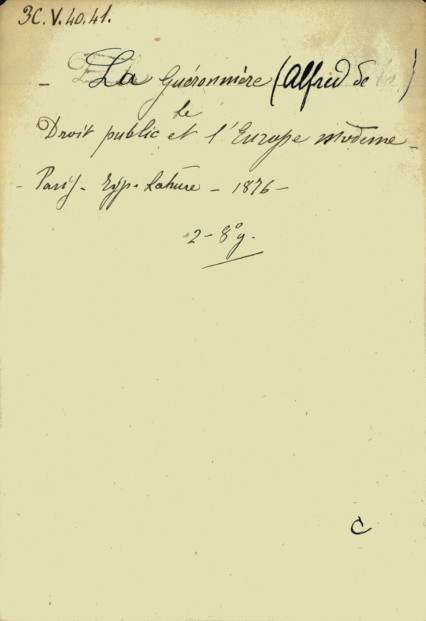 3C.V.40.41.
- La Guéronnière (Alfred de )
le
Droit public et l'Europe moderne -
- Paris - Typ. Lahure - 1876 -
2 - 8º g.
C